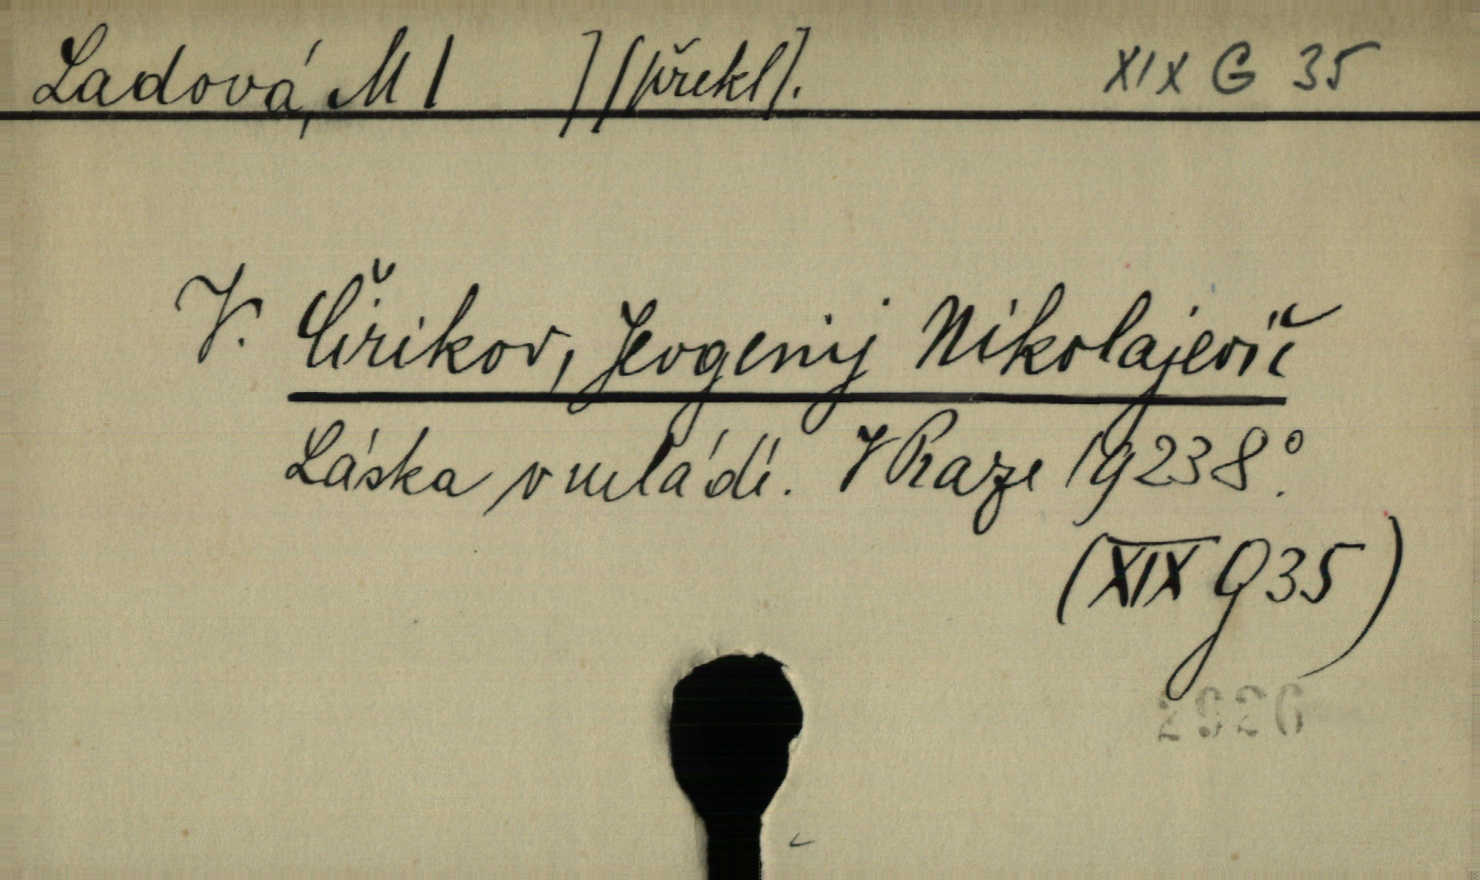 Ladová, M[ ] [překl].
XIX G 35
V. Čirikov, Jevgenij Nikolajevič
Láska v mládí. V Praze 1923 8°.
(XIX G 35)